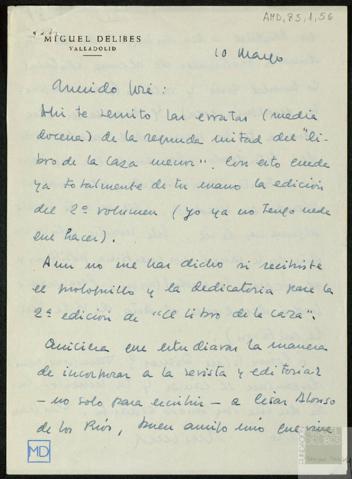 AMD, 83, 1, 56
MIGUEL DELIBES
VALLADOLID
10 Marzo
Querido José:
Ahí te remito las erratas (media
docena) de la segunda mitad del "li-
bro de la caza menor". Con esto queda
ya totalmente de tu mano la edición
del 2º volumen (yo ya no tengo nada
que hacer).
Aun no me has dicho si recibiste
el prologuillo y la dedicatoria para la
2ª edición de "El libro de la caza".
Quisiera que estudiaras la manera
de incorporar a la revista y editorial
— no solo para escribir — a César Alonso
de los Ríos, buen amigo mío que vive
MD
DELIBES